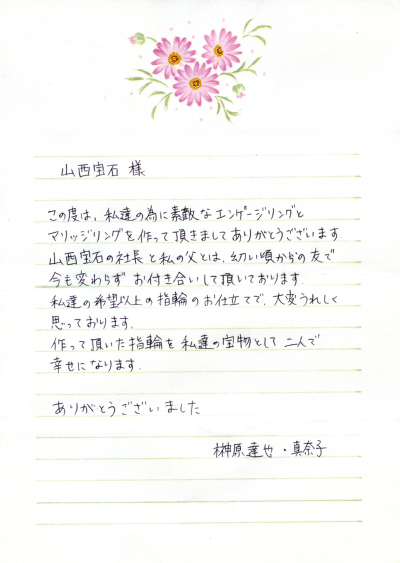 山西宝石 様
この度は、私達の為に素敵なエンゲージリングと
マリッジリングを作って頂きましてありがとうございます
山西宝石の社長と私の父とは、幼い頃からの友で
今も変わらず お付き合いして頂いております.
私達の希望以上の指輪のお仕立てで、大変うれしく
思っております.
作って頂いた指輪を 私達の宝物として 二人で
幸せになります.
ありがとうございました
榊原達也・真奈子